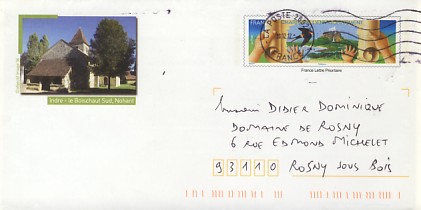 FRANCE
LA POSTE
FRANCE
France Lettre Prioritaire
Indre - le Boischaut Sud, Nohant
Monsieur DIDIER DOMINIQUE
DOMAINE DE ROSNY
6 RUE EDMOND MICHELET
93110 ROSNY SOUS BOIS